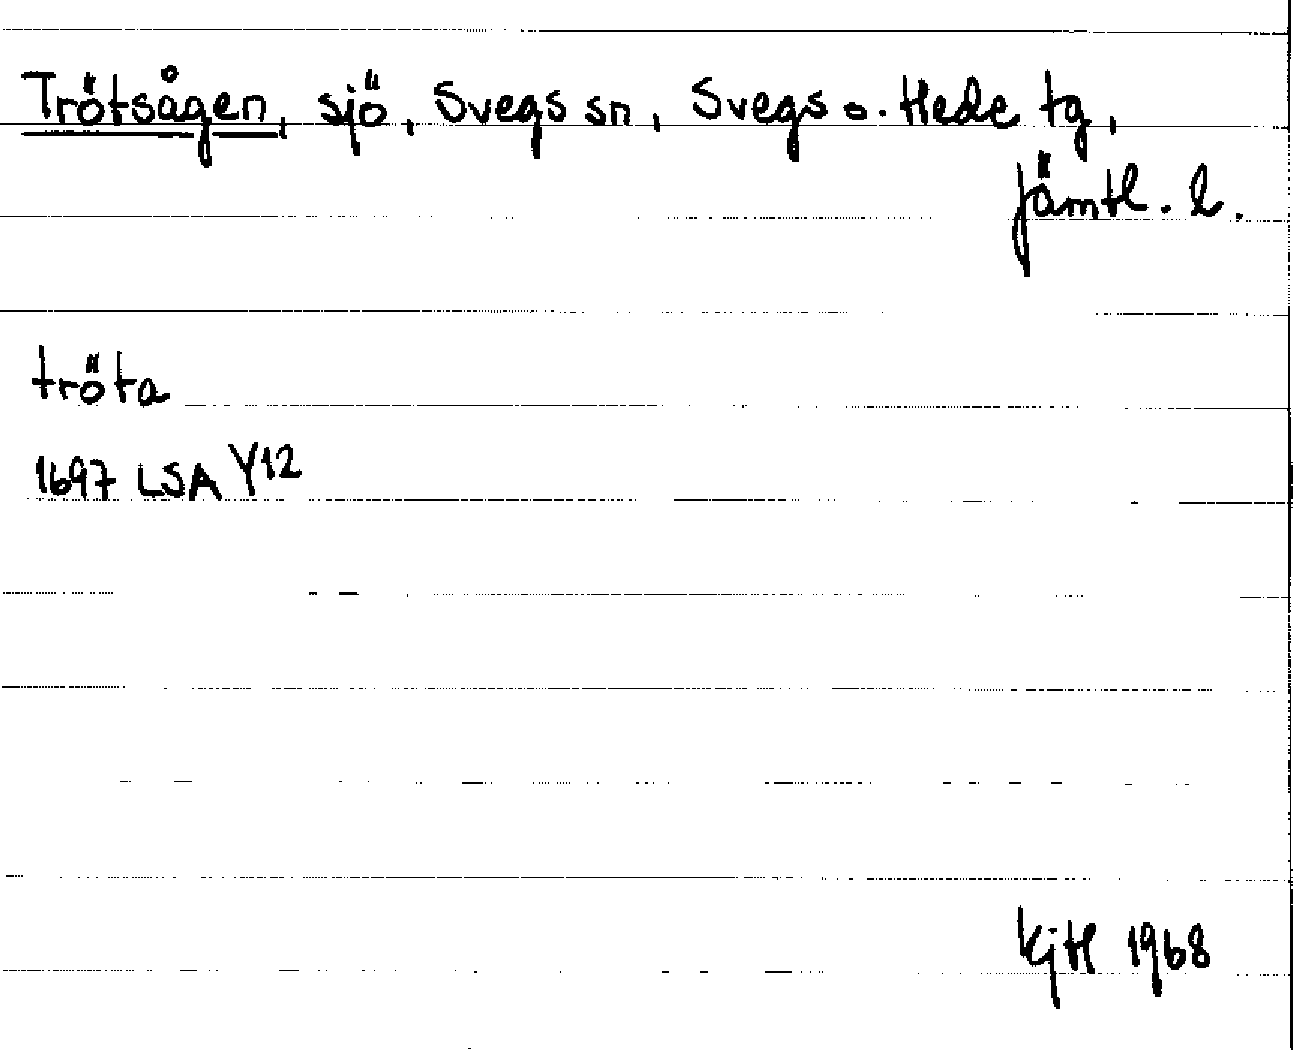 Trötsågen, sjö, Svegs sn, Svegs o. Hede tg,
Jämtl. l.
tröta
1697 LSA Y12
KjH 1968